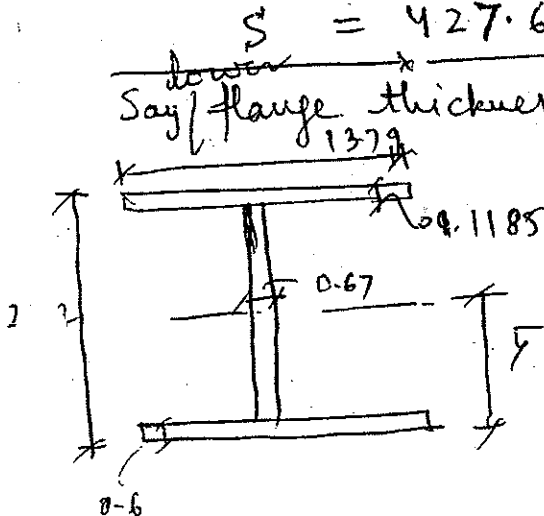 S = 427.6
lower
Say flange thicknes
1379
1.1185
0.67
y
0-6